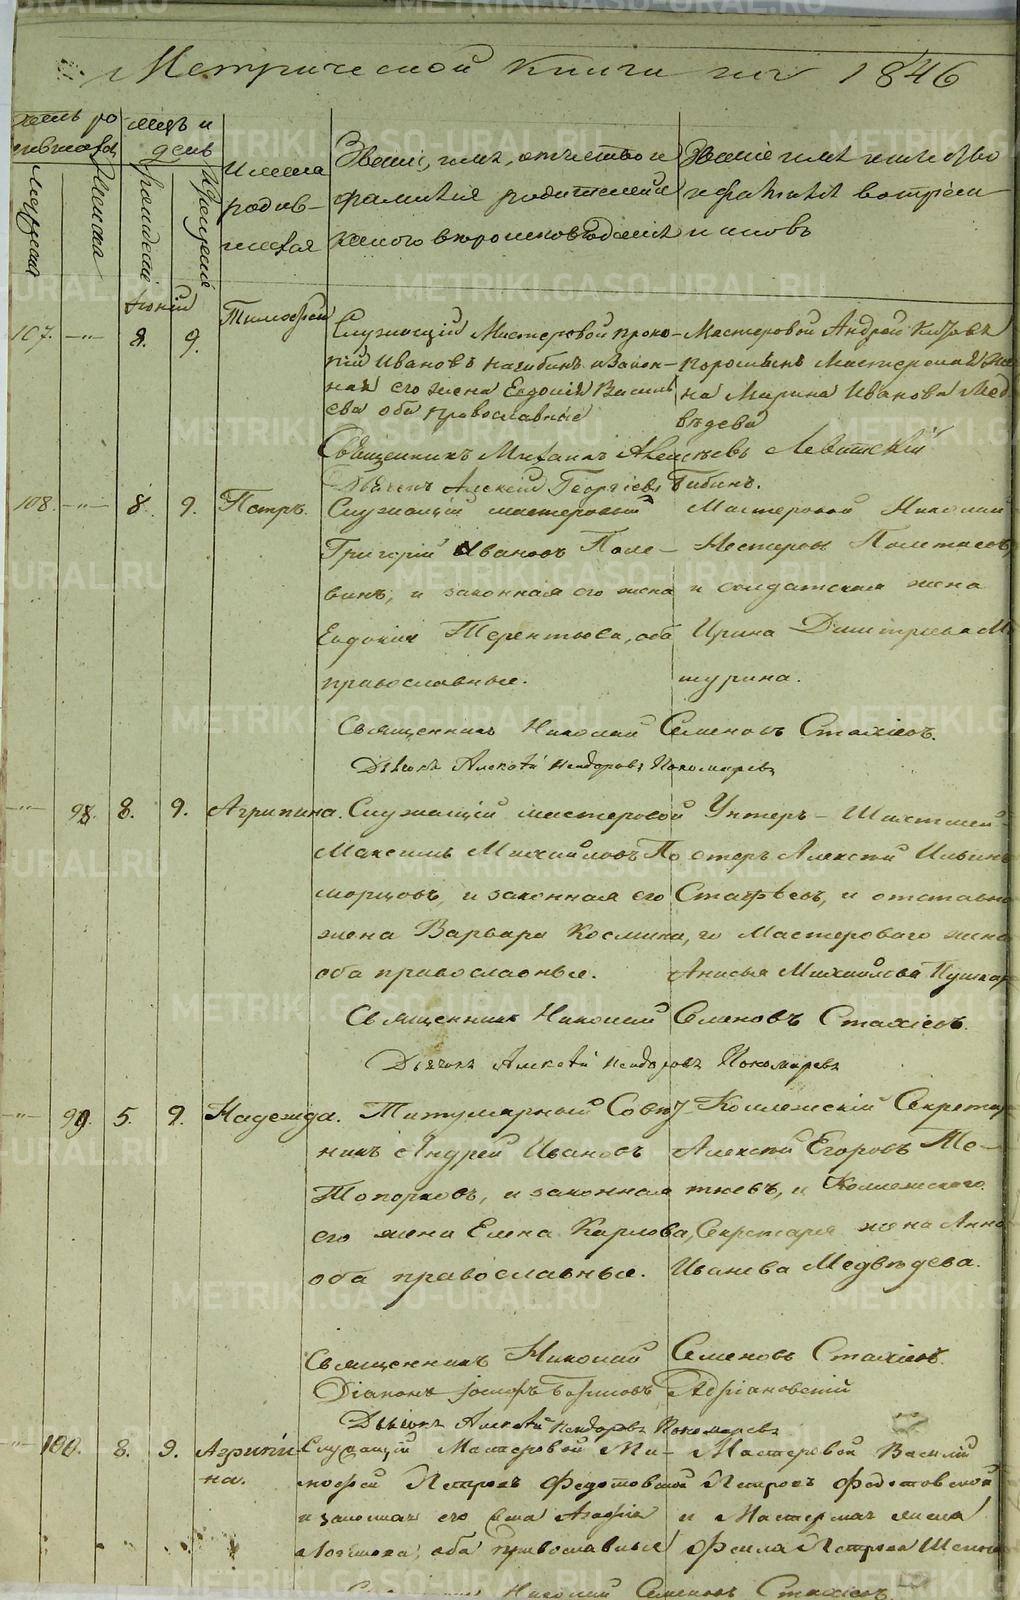 Метрической книги на 1846
мѣсяцъ и день
Имена родив-
шихся
Званіе, имя, отчество и
фамилія родителей и
какого вероисповѣданія
Званіе имя отчество
и фамилія воспріем-
никовъ
мужеска
женска
рожденія
крещенія
Іюній
107. —"— 8. 9.
Тимофей
Служащій Мастеровой Проко-
пій Ивановъ Нагибинъ и Закон-
ная его жена Евдокія Василь
ева оба православные
Мастеровой Андрей
Мастерская же
на Марина Иванова Мед
вѣдева
Священникъ Михаилъ Алексѣевъ Левитскій
Дьячекъ Алексій Георгіевъ Бибинъ.
108. —"— 8. 9. Петръ.
Служащій мастеровый
Григорій Ивановъ Поле-
винъ, и законная его жена
Евдокия Терентьева, оба
православные.
Мастеровой Николай
Нестеровъ Полетаевъ,
и солдатская жена
Ирина Димитріева М
турина.
Священникъ Николай Семеновъ Стахіевъ.
Дьячекъ Алексѣй Ѳеодоровъ Пономаревъ
—"— 98. 8. 9. Агрипина.
Служащій мастеровой
Максимъ Михайловъ По
морцовъ, и законная его
жена Варвара Космина,
оба православные.
Унтеръ-Шихтмей-
стеръ Алексѣй Ильинъ
Стафѣевъ, и отставна
го Мастероваго жена
Анисья Михайлова Пушкар
Священникъ Николай Семеновъ Стахіевъ.
Дьячекъ Алексѣй Ѳеодоровъ Пономаревъ
—"— 99. 5. 9. Надежда.
Титулярный Совѣт-
никъ Андрей Ивановъ
Топорковъ, и законная
его жена Елена Карлова,
оба православные.
Коллежскій Секретар
Алексѣй Егоровъ Те-
тюевъ, и Коллежскаго
Секретаря жена Анна
Иванова Медвѣдева.
Священникъ Николай Семеновъ Стахіевъ.
Діаконъ Іосифъ Борисовъ Адріановскій
Дьячекъ Алексѣй Ѳеодоровъ Пономаревъ
—"— 100. 8. 9. Агрипи-
на.
Служащій Мастеровой Ти-
мофей Петровъ Федотовской
и законная его жена Агафія
оба православные
Мастеровой Василій
Петровъ Федотовской
и Мастерская жена
Фекла Петрова
Священникъ Николай Семеновъ Стахіевъ.
METRIKI.GASO-URAL.RU